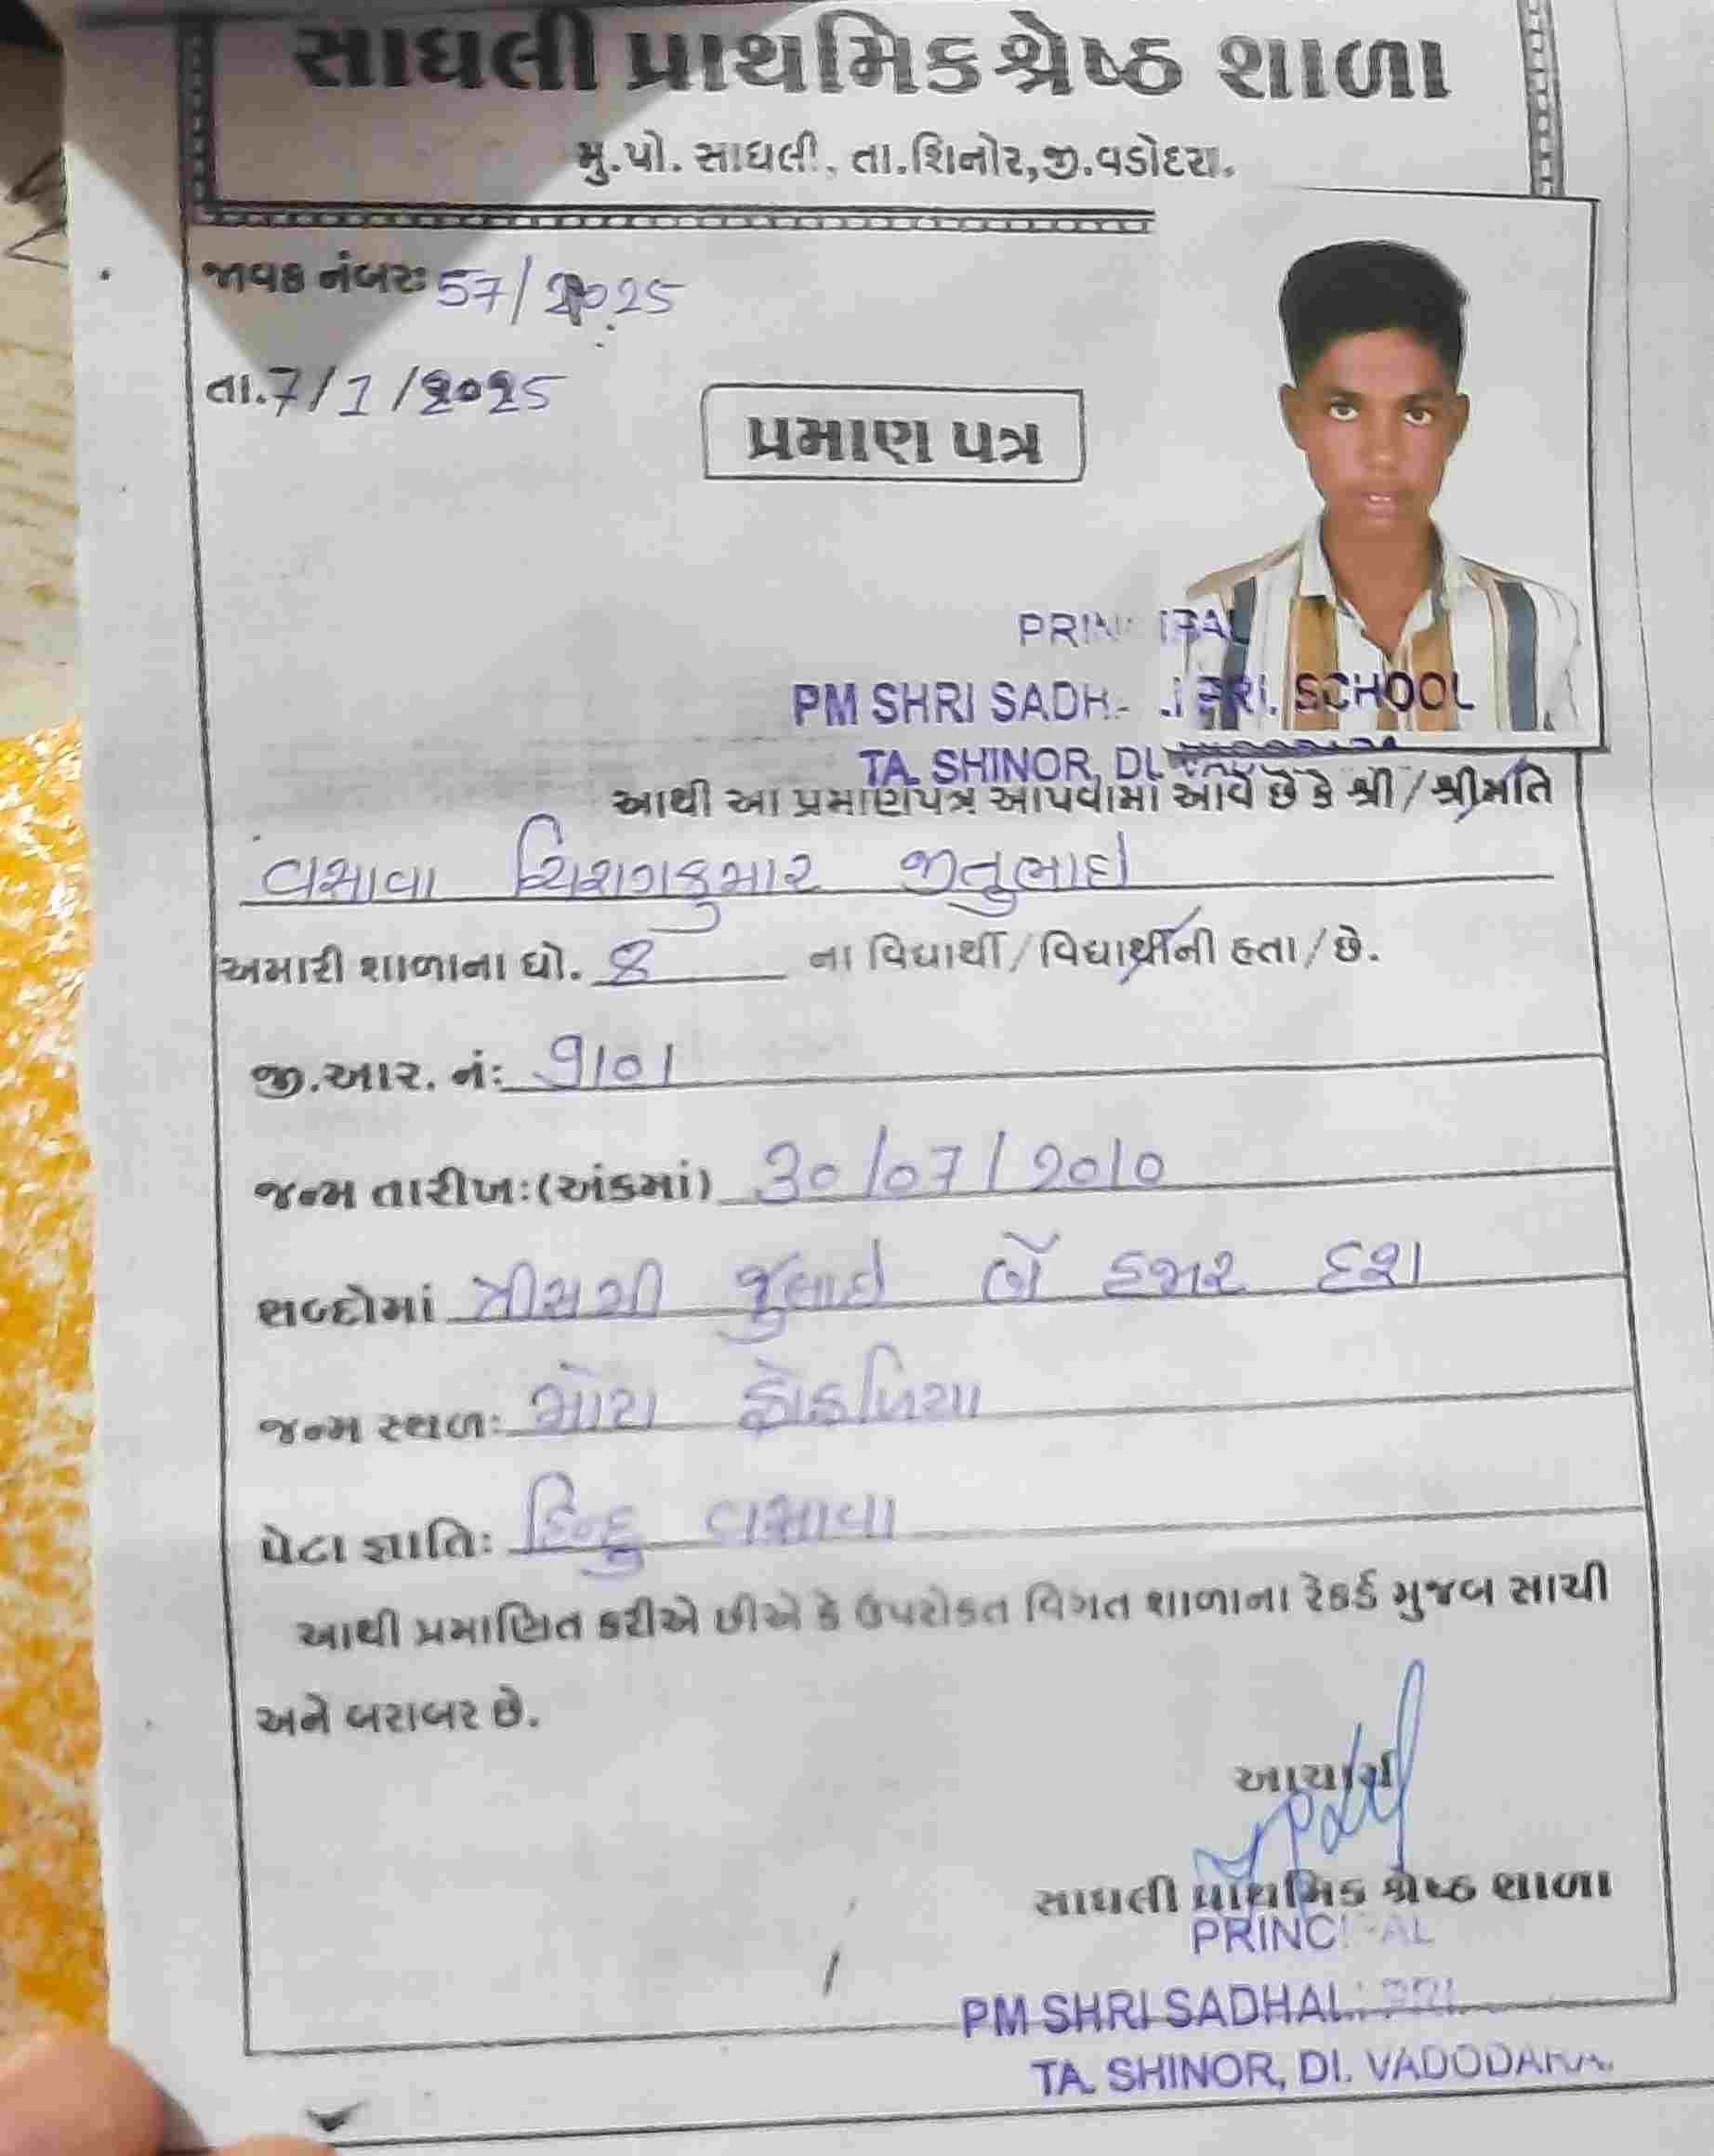 સાધલી પ્રાથમિક શ્રેષ્ઠ શાળા
મુ.પો. સાધલી, તા.શિનોર,જી.વડોદરા.
જાવક નંબરઃ 57/2025
તા.7/1/2025
પ્રમાણ પત્ર
PRINCIPAL
PM SHRI SADHALI PRI. SCHOOL
TA. SHINOR, DI.
આથી આ પ્રમાણપત્ર આપવામાં આવે છે કે શ્રી/શ્રીમતિ
વસાવા ચિરાગકુમાર જીતુભાઇ
અમારી શાળાના ધો. 8 ના વિદ્યાર્થી/વિદ્યાર્થીની હતા/છે.
જી.આર. નંઃ 9101
જન્મ તારીખઃ(અંકમાં) 30/07/2010
શબ્દોમાં ત્રીસમી જુલાઇ બે હજાર દશ
જન્મ સ્થળઃ મોટા ફોફળિયા
પેટા જ્ઞાતિઃ હિન્દુ વસાવા
આથી પ્રમાણિત કરીએ છીએ કે ઉપરોકત વિગત શાળાના રેકર્ડ મુજબ સાચી
અને બરાબર છે.
આચાર્ય
સાધલી પ્રાથમિક શ્રેષ્ઠ શાળા
PRINCIPAL
PM SHRI SADHALI PRI.
TA. SHINOR, DI. VADODARA.